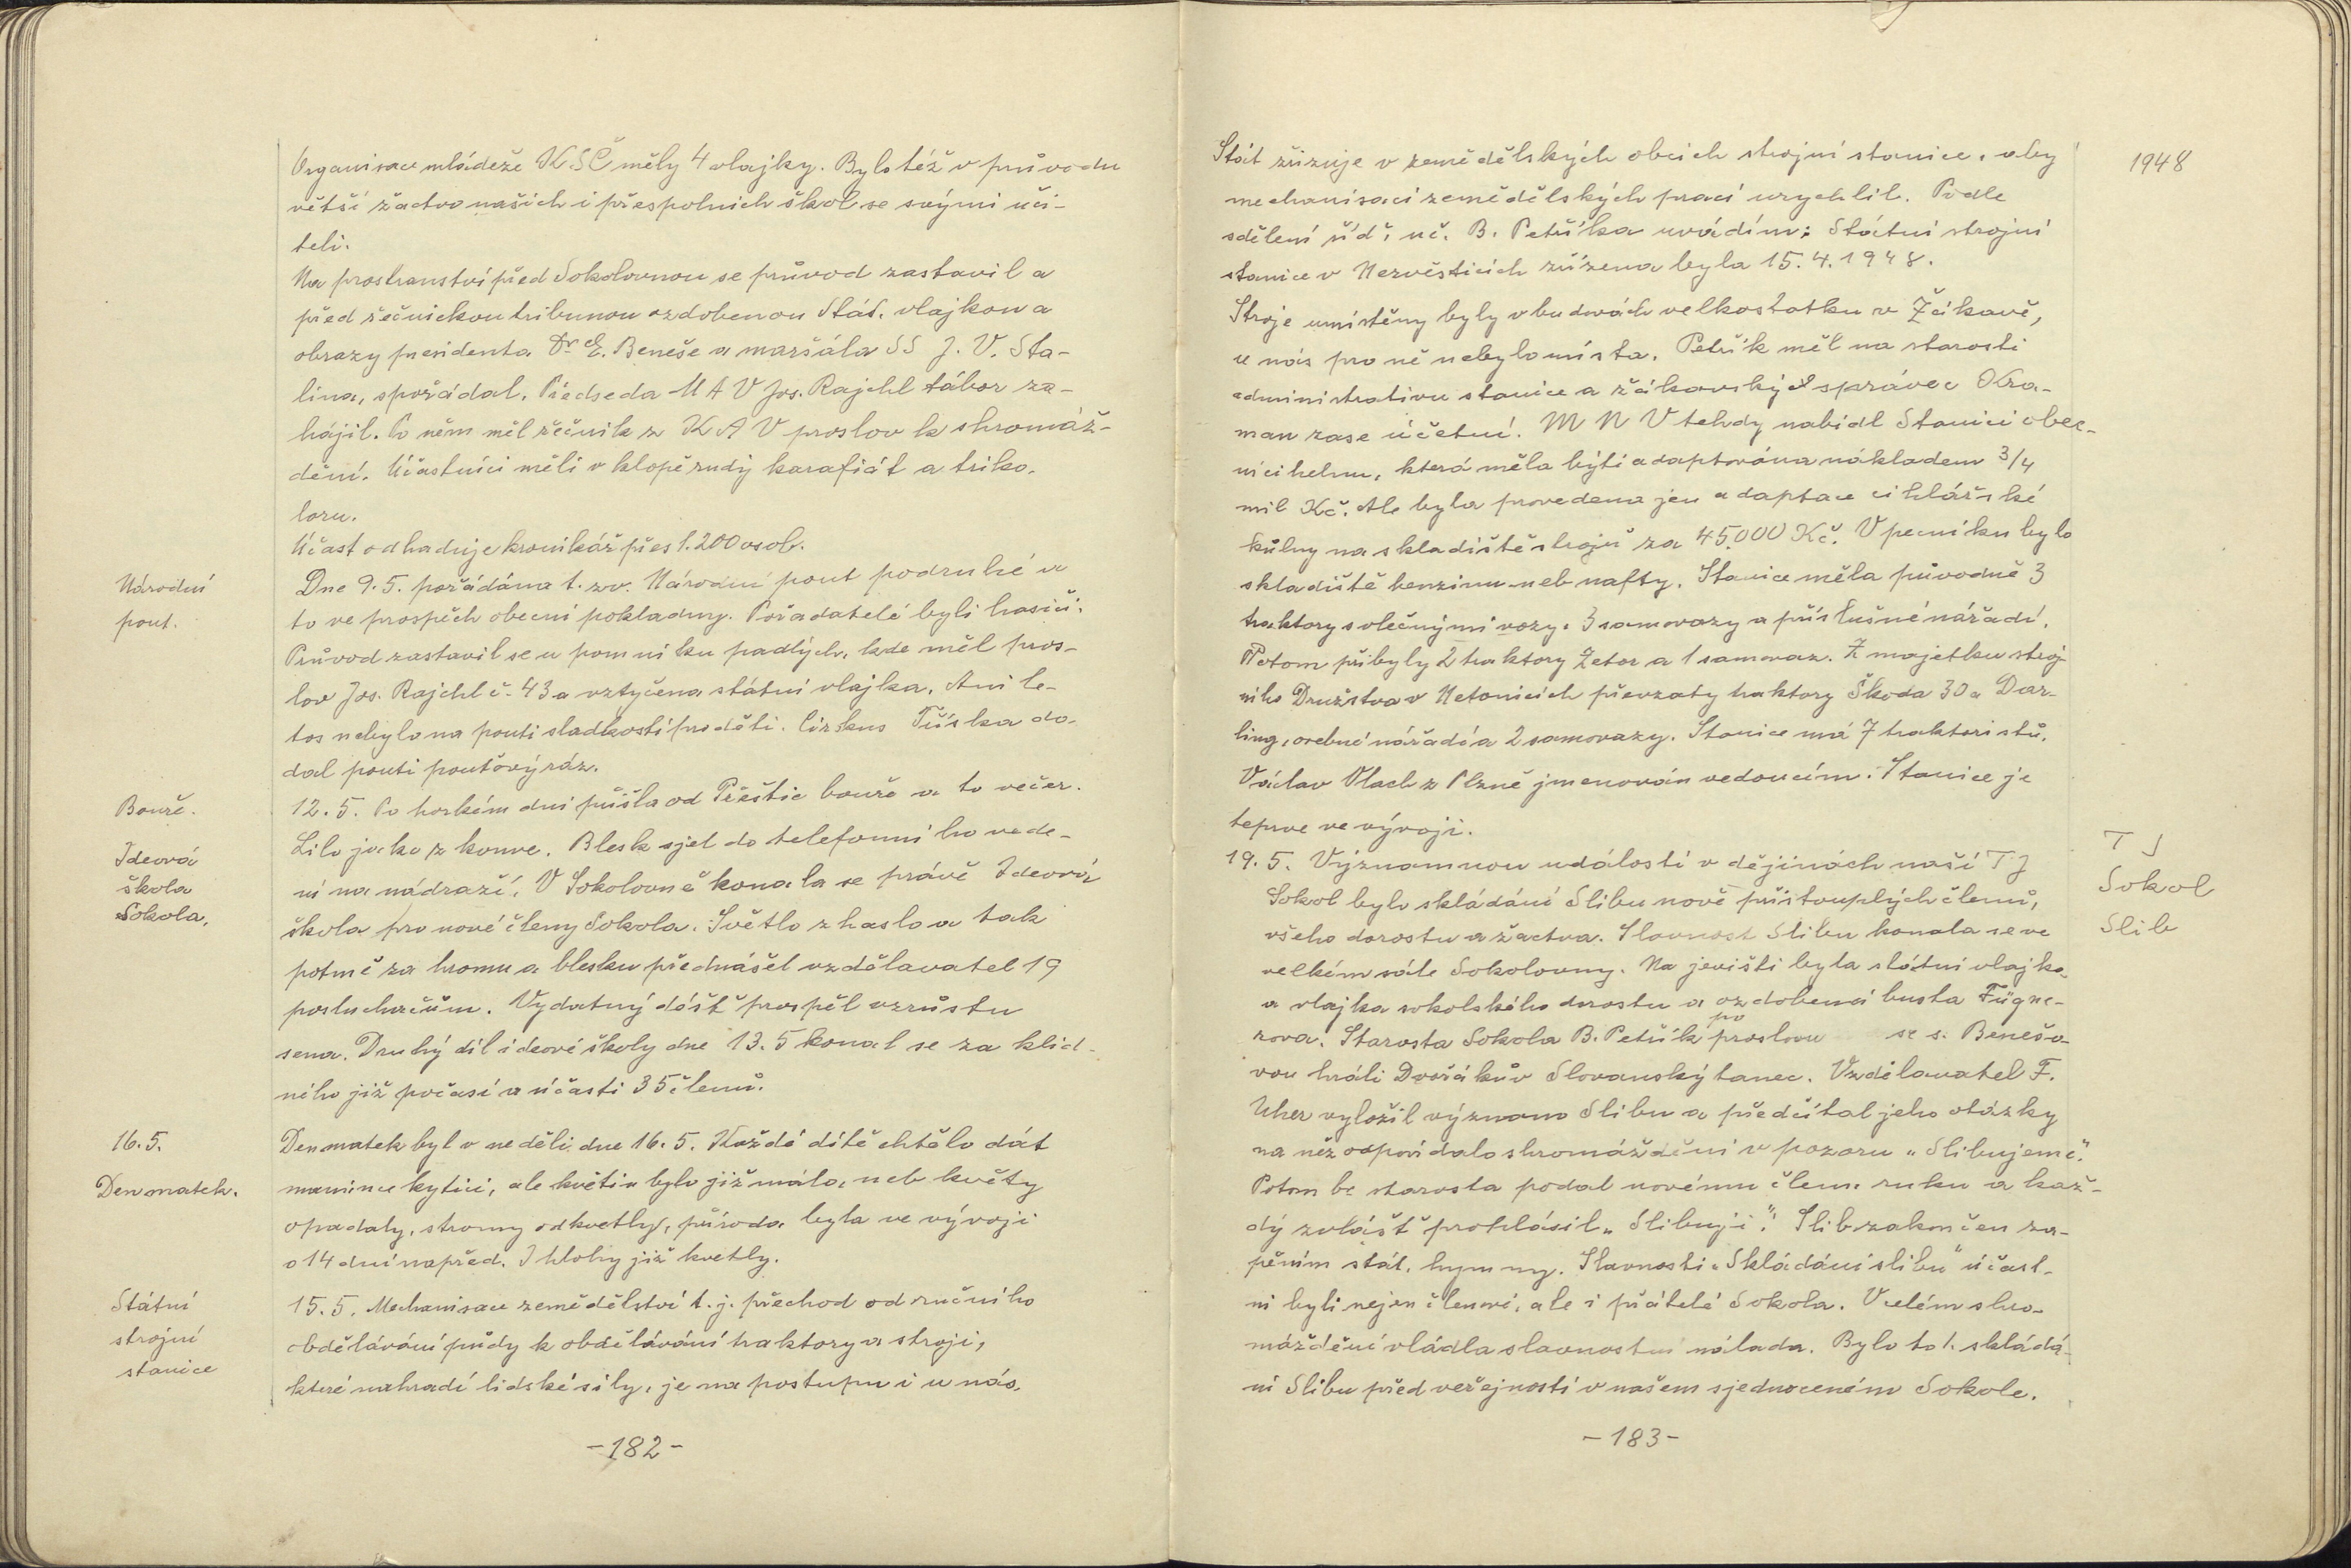 Organisace mládeže KSČ měly 4 vlajky. Bylo též v průvodu
větší žactvo našich i přespolních škol se svými uči-
teli.
Na prostranství před Sokolovnou se průvod zastavil a
před řečnickou tribunou ozdobenou Stát. vlajkou a
obrazy presidenta Dr E. Beneše a maršála SS J. V. Sta-
lina, spořádal. Předseda MAV Jos. Rajchl tábor za-
hájil. Po něm měl řečník z KAV proslov k shromáž-
dění. Účastníci měli v klopě rudý karafiát a triko-
loru.
Účast odhaduje kronikář přes 1.200 osob.
Národní
pout.
Dne 9.5. pořádána t. zv. Národní pout podruhé a
to ve prospěch obecní pokladny. Pořadatelé byli hasiči.
Průvod zastavil se u pomníku padlých, kde měl pros-
lov Jos. Rajchl č. 43 a vztyčena státní vlajka. Ani le-
tos nebylo na pouti sladkostí pro děti. Cirkus Tříska do-
dal pouti pouťový ráz.
Bouře.
12.5. Po horkém dni přišla od Přeštic bouře a to večer.
Lilo jako z konve. Blesk sjel do telefonního vede-
Ideová
škola
Sokola.
ní na nádraží. V Sokolovně konala se právě Ideová
škola pro nové členy Sokola. Světlo zhaslo a tak
potmě za hromu a blesku přednášel vzdělavatel 19
posluchačům. Vydatný dešť prospěl vzrůstu
sena. Druhý díl ideové školy dne 13.5 konal se za klid-
ného již počasí a účasti 35 členů.
16.5.
Den matek.
Den matek byl v neděli dne 16.5. Každé dítě chtělo dát
mamince kytici, ale květin bylo již málo, neb květy
opadaly, stromy odkvetly, příroda byla ve vývoji
o 14 dní napřed. I hlohy již kvetly.
Státní
strojní
stanice
15.5. Mechanisace zemědělství t. j. přechod od ručního
obdělávání půdy k obdělávání traktory a stroji,
které nahradí lidské síly, je na postupu i u nás.
-182-
1948
Stát zřizuje v zemědělských obcích strojní stanice, aby
mechanisaci zemědělských prací urychlil. Podle
sdělení říd. uč. B. Petříka uvádím: Státní strojní
stanice v Nezvěsticích zřízena byla 15.4.1948.
Stroje umístěny byly v budovách velkostatku v Žákavě,
u nás pro ně nebylo místa. Petřík měl na starosti
administrativu stanice a žákavský správce Kra-
man zase účetní. MNV tehdy nabídl Stanici obec-
ní cihelnu, která měla býti adaptována nákladem 3/4
mil Kč. Ale byla provedena jen adaptace cihlářské
kůlny na skladiště strojů za 45.000 Kč. V pecníku bylo
skladiště benzinu neb nafty. Stanice měla původně 3
traktory s vlečnými vozy, 3 samovazy a příslušné nářadí.
Potom přibyly 2 traktory Zetor a 1 samovaz. Z majetku stroj-
ního Družstva v Netonicích převzaty traktory Škoda 30 a Dar-
ling, orebné nářadí a 2 samovazy. Stanice má 7 traktoristů.
Václav Vlach z Plzně jmenován vedoucím. Stanice je
teprve ve vývoji.
TJ
Sokol
Slib
19.5. Významnou událostí v dějinách naší TJ
Sokol bylo skládání Slibu nově přistouplých členů,
všeho dorostu a žactva. Slavnost Slibu konala se ve
velkém sále Sokolovny. Na jevišti byla státní vlajka
a vlajka sokolského dorostu a ozdobená busta Fügne-
rova. Starosta Sokola B. Petřík po proslovu se s. Benešo-
vou hráli Dvořákův Slovanský tanec. Vzdělavatel F.
Uher vyložil význam Slibu a předčítal jeho otázky
na něž odpovídalo shromáždění v pozoru „Slibujeme".
Potom br starosta podal novému členu ruku a kaž-
dý zvlášť prohlásil „Slibuji". Slib zakončen za-
pěním stát. hymny. Slavnosti „Skládání slibu" účast-
ni byli nejen členové, ale i přátelé Sokola. V celém shro-
máždění vládla slavnostní nálada. Bylo to 1. skládá-
ní Slibu před veřejností v našem sjednoceném Sokole.
-183-